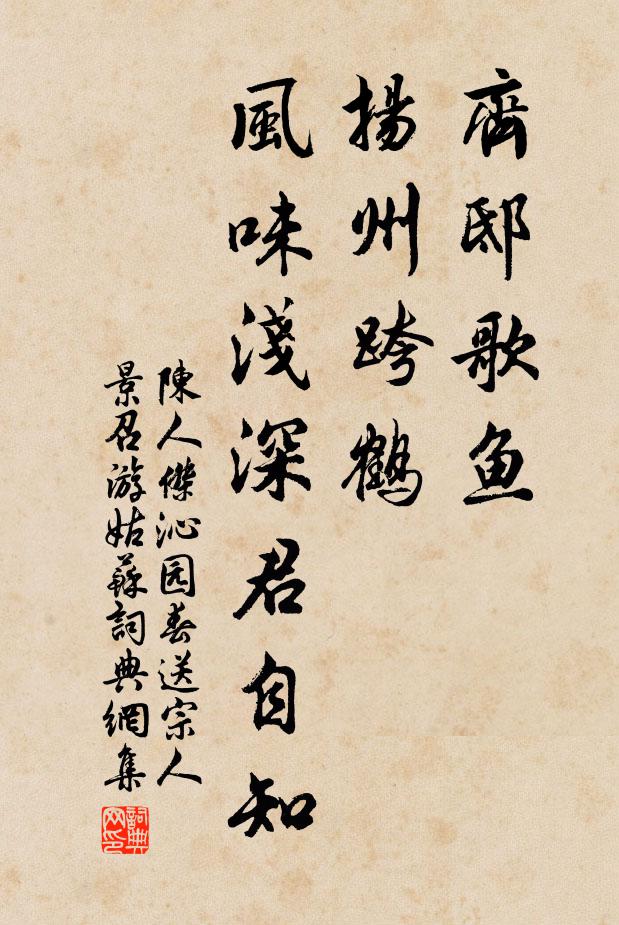 齊邸歌鱼
揚州跨鶴
風味淺深君自知
陳人傑沁园春送宗人
景召游姑蘇詞典網集
詞典网印